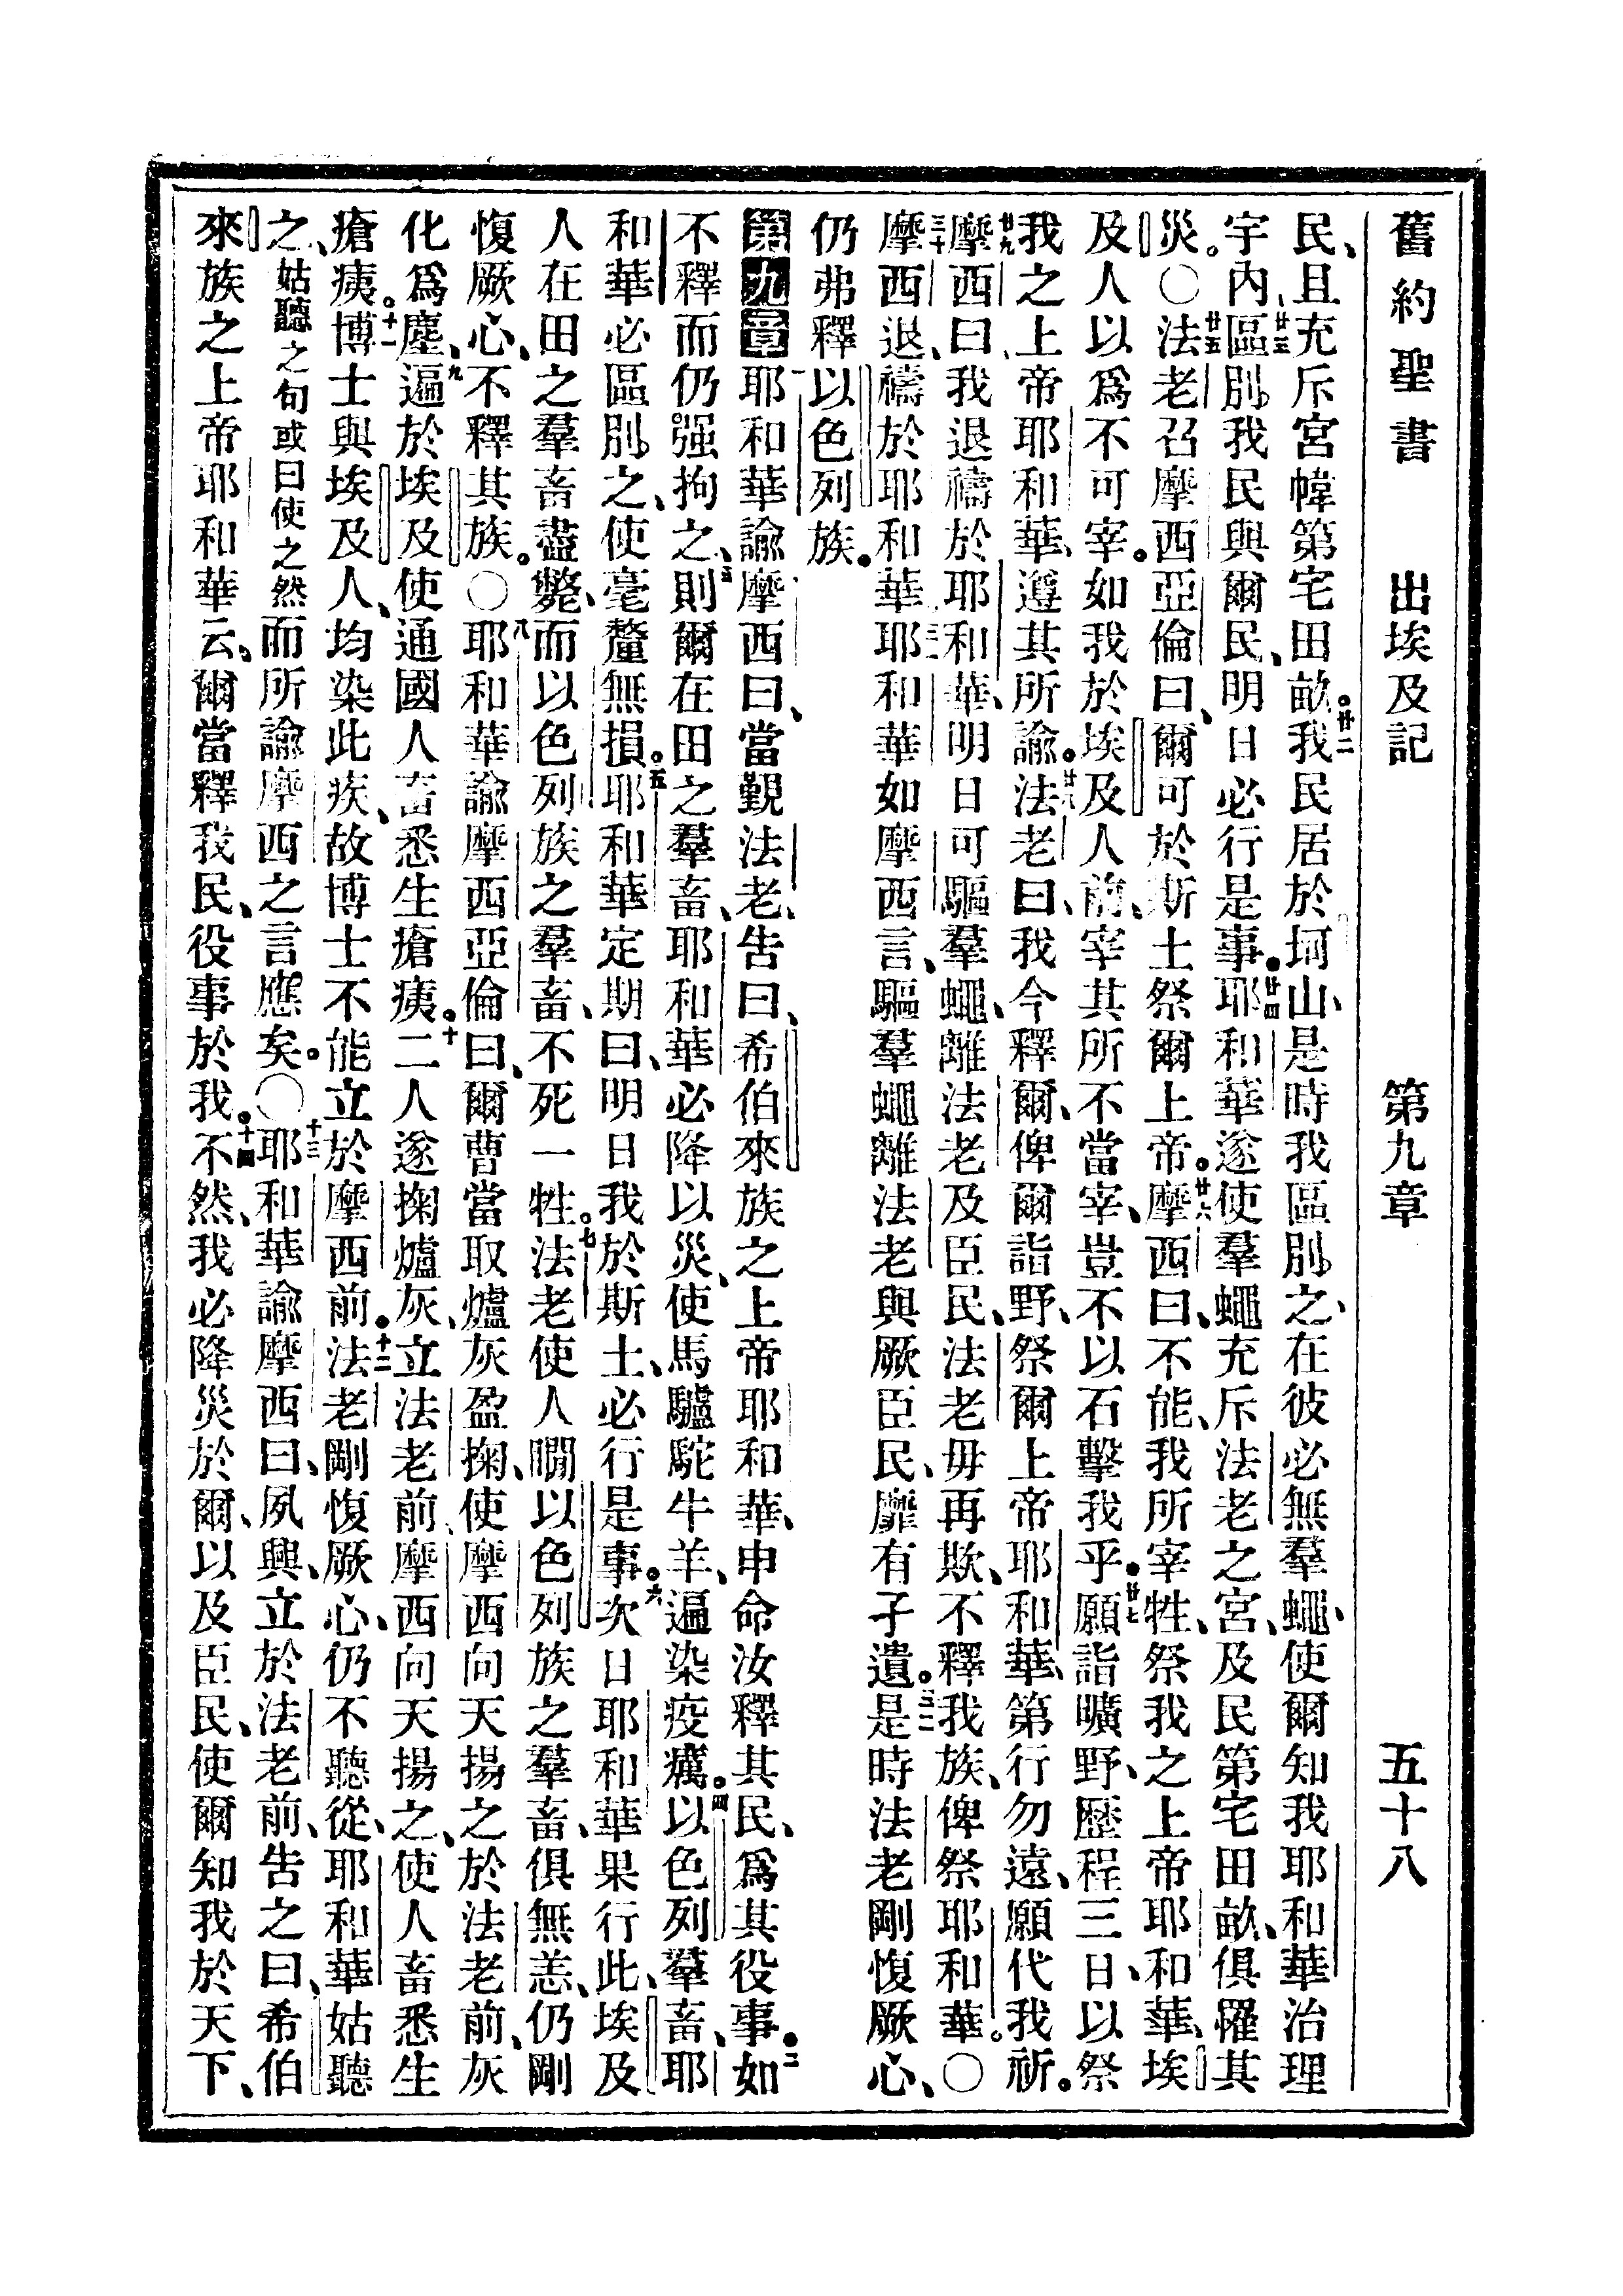 舊約聖書　出埃及記　第九章　五十八
民、且充斥宮幃第宅田畝。廿二我民居於坷山、是時我區別之、在彼必無羣蠅、使爾知我耶和華治理
宇內、廿三區別我民與爾民、明日必行是事。廿四耶和華遂使羣蠅充斥法老之宮、及民第宅田畝、俱罹其
災。〇廿五法老召摩西亞倫曰、爾可於斯土祭爾上帝。廿六摩西曰、不能、我所宰牲、祭我之上帝耶和華、埃
及人以爲不可宰。如我於埃及人前、宰其所不當宰、豈不以石擊我乎。廿七願詣曠野、歷程三日、以祭
我之上帝耶和華、遵其所諭。廿八法老曰、我今釋爾、俾爾詣野、祭爾上帝耶和華、第行勿遠、願代我祈。
廿九摩西曰、我退禱於耶和華、明日可驅羣蠅、離法老及臣民、法老毋再欺、不釋我族、俾祭耶和華。〇
三十摩西退、禱於耶和華、三一耶和華如摩西言、驅羣蠅離法老與厥臣民、靡有孑遺。三二是時法老剛愎厥心、
仍弗釋以色列族。
第九章一耶和華諭摩西曰、當覲法老、告曰、希伯來族之上帝耶和華、申命汝釋其民、爲其役事。二如
不釋而仍强拘之、三則爾在田之羣畜、耶和華必降以災、使馬驢駝牛羊、遍染疫癘。四以色列羣畜、耶
和華必區別之、使毫釐無損。五耶和華定期曰、明日我於斯土、必行是事。六次日耶和華果行此、埃及
人在田之羣畜盡斃、而以色列族之羣畜、不死一牲。七法老使人瞯以色列族之羣畜、俱無恙、仍剛
愎厥心、不釋其族。〇八耶和華諭摩西亞倫曰、爾曹當取爐灰盈掬、使摩西向天揚之於法老前、灰
化爲塵、九遍於埃及、使通國人畜悉生瘡痍。十二人遂掬爐灰、立法老前、摩西向天揚之、使人畜悉生
瘡痍。十一博士與埃及人、均染此疾、故博士不能立於摩西前。十二法老剛愎厥心、仍不聽從、耶和華姑聽
之、姑聽之句或曰使之然而所諭摩西之言應矣。〇十三耶和華諭摩西曰、夙興、立於法老前、告之曰、希伯
來族之上帝耶和華云、爾當釋我民、役事於我。十四不然、我必降災於爾、以及臣民、使爾知我於天下、